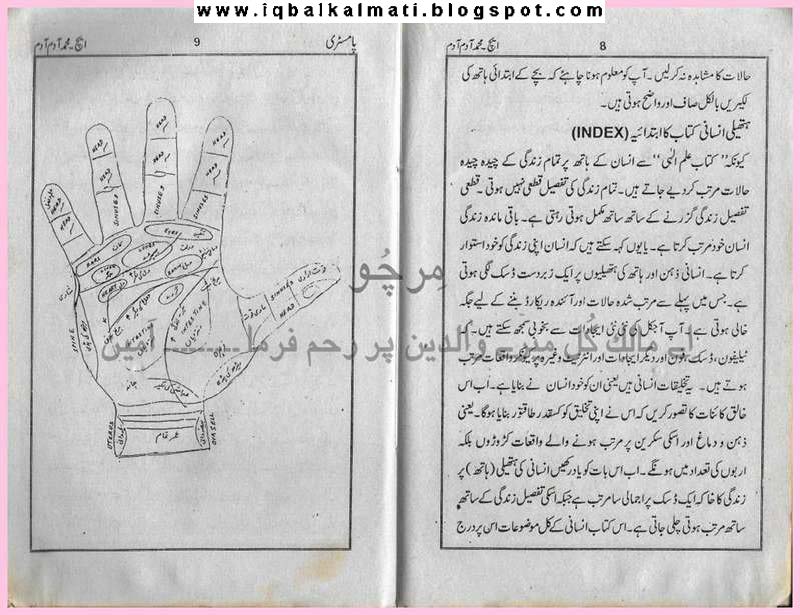 www.iqbalkalmati.blogspot.com
8
ایچ۔محمد آدم آدم
حالات کا مشاہدہ نہ کرلیں۔ آپ کو معلوم ہونا چاہئے کہ بچے کے ابتدائی ہاتھ کی
لکیریں بالکل صاف اور واضح ہوتی ہیں۔
ہتھیلی انسانی کتاب کا ابتدائیہ (INDEX)
کیونکہ ”کتاب علم الٰہی“ سے انسان کے ہاتھ پر تمام زندگی کے چیدہ چیدہ
حالات مرتب کردیے جاتے ہیں۔ تمام زندگی کی تفصیل قطعی نہیں ہوتی۔ قطعی
تفصیل زندگی گزرنے کے ساتھ ساتھ مکمل ہوتی رہتی ہے۔ باقی ماندہ زندگی
انسان خود مرتب کرتا ہے۔ یا یوں کہہ سکتے ہیں کہ انسان اپنی زندگی کو خود استوار
کرتا ہے۔ انسانی ذہن اور ہاتھ کی ہتھیلیوں پر ایک زبردست ڈسک لگی ہوتی
ہے۔ جس میں پہلے سے مرتب شدہ حالات اور آئندہ ریکارڈ بننے کے لیے جگہ
خالی ہوتی ہے۔ آپ آجکل کی نئی نئی ایجادات سے بخوبی سمجھ سکتے ہیں۔ کہ
ٹیلیفون، ڈسک، فون اور دیگر ایجادات اور انٹرنیٹ وغیرہ پر کیونکر واقعات مرتب
ہوتے ہیں۔ یہ تخلیقات انسانی ہیں یعنی ان کو خود انسان نے بنایا ہے۔ اب اس
خالق کائنات کا تصور کریں کہ اس نے اپنی تخلیق کو کسقدر طاقتور بنایا ہوگا۔ یعنی
ذہن و دماغ اور اسکی سکرین پر مرتب ہونے والے واقعات کڑوڑوں بلکہ
اربوں کی تعداد میں ہونگے۔ اب اس بات کو یاد رکھیں انسانی کی ہتھیلی (ہاتھ) پر
زندگی کا خاکہ ایک ڈسک پر اجمالی سا مرتب ہے جبکہ اسکی تفصیل زندگی کے ساتھ
ساتھ مرتب ہوتی چلی جاتی ہے۔ اس کتاب انسانی کے کل موضوعات اس پر درج
پامسٹری
9
ایچ۔محمد آدم آدم
HEAD
HEAD
HEAD
SINUSES
SINUSES
SINUSES
EARS
EYES
HEART
SPINE
INTESTINE
UTERUS
مِرچُو
اے مالکِ کُل میرے والدین پر رحم فرما۔۔۔۔۔۔آمین